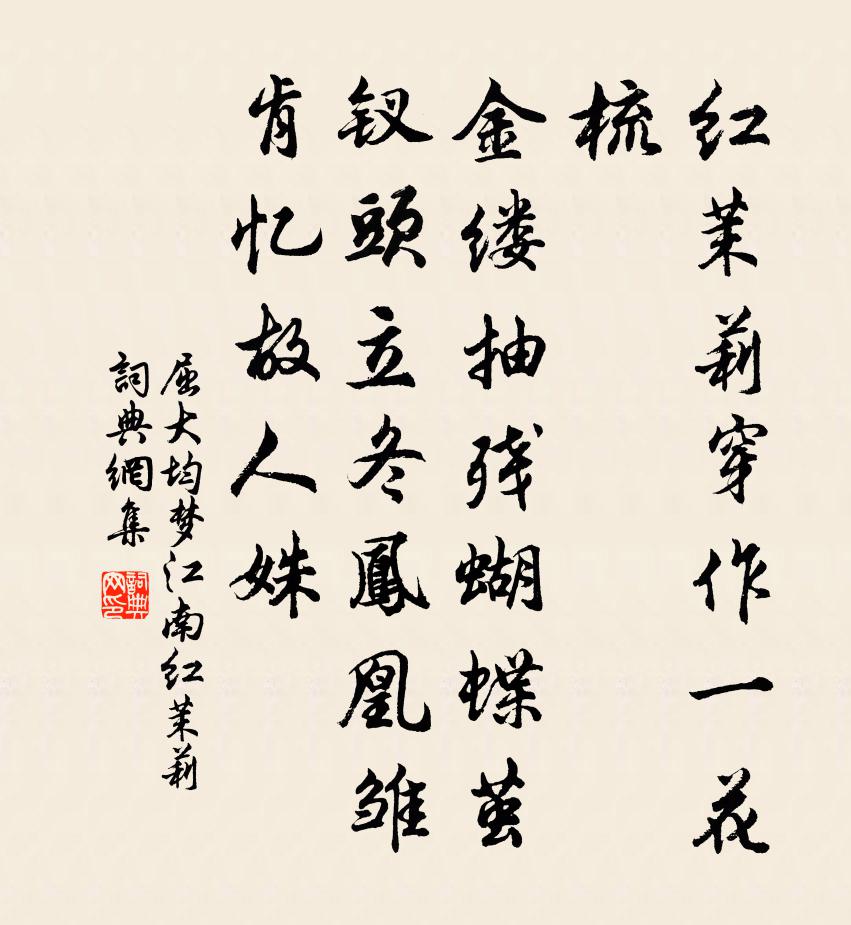 红茉莉穿作一花
梳
金缕抽残蝴蝶茧
钗頭立冬鳳凰雏
肯忆故人姝
屈大均梦江南红茉莉
詞典網集
詞典网印